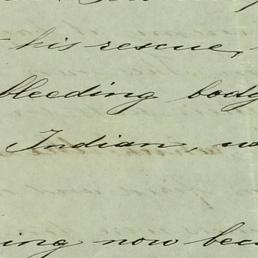 his rescue,
bleeding body
Indian,
ing now bec